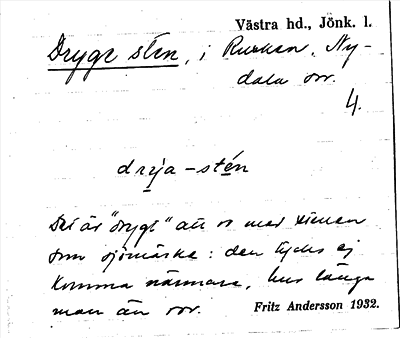 Västra hd., Jönk. l.
Dryge sten, i Rusken, Ny-
dala sn.
4.
dryja-stén
Det är "drygt" att ro med stenen
som sjömärke: den tycks ej
komma närmare, hur länge
man än ror.
Fritz Andersson 1932.